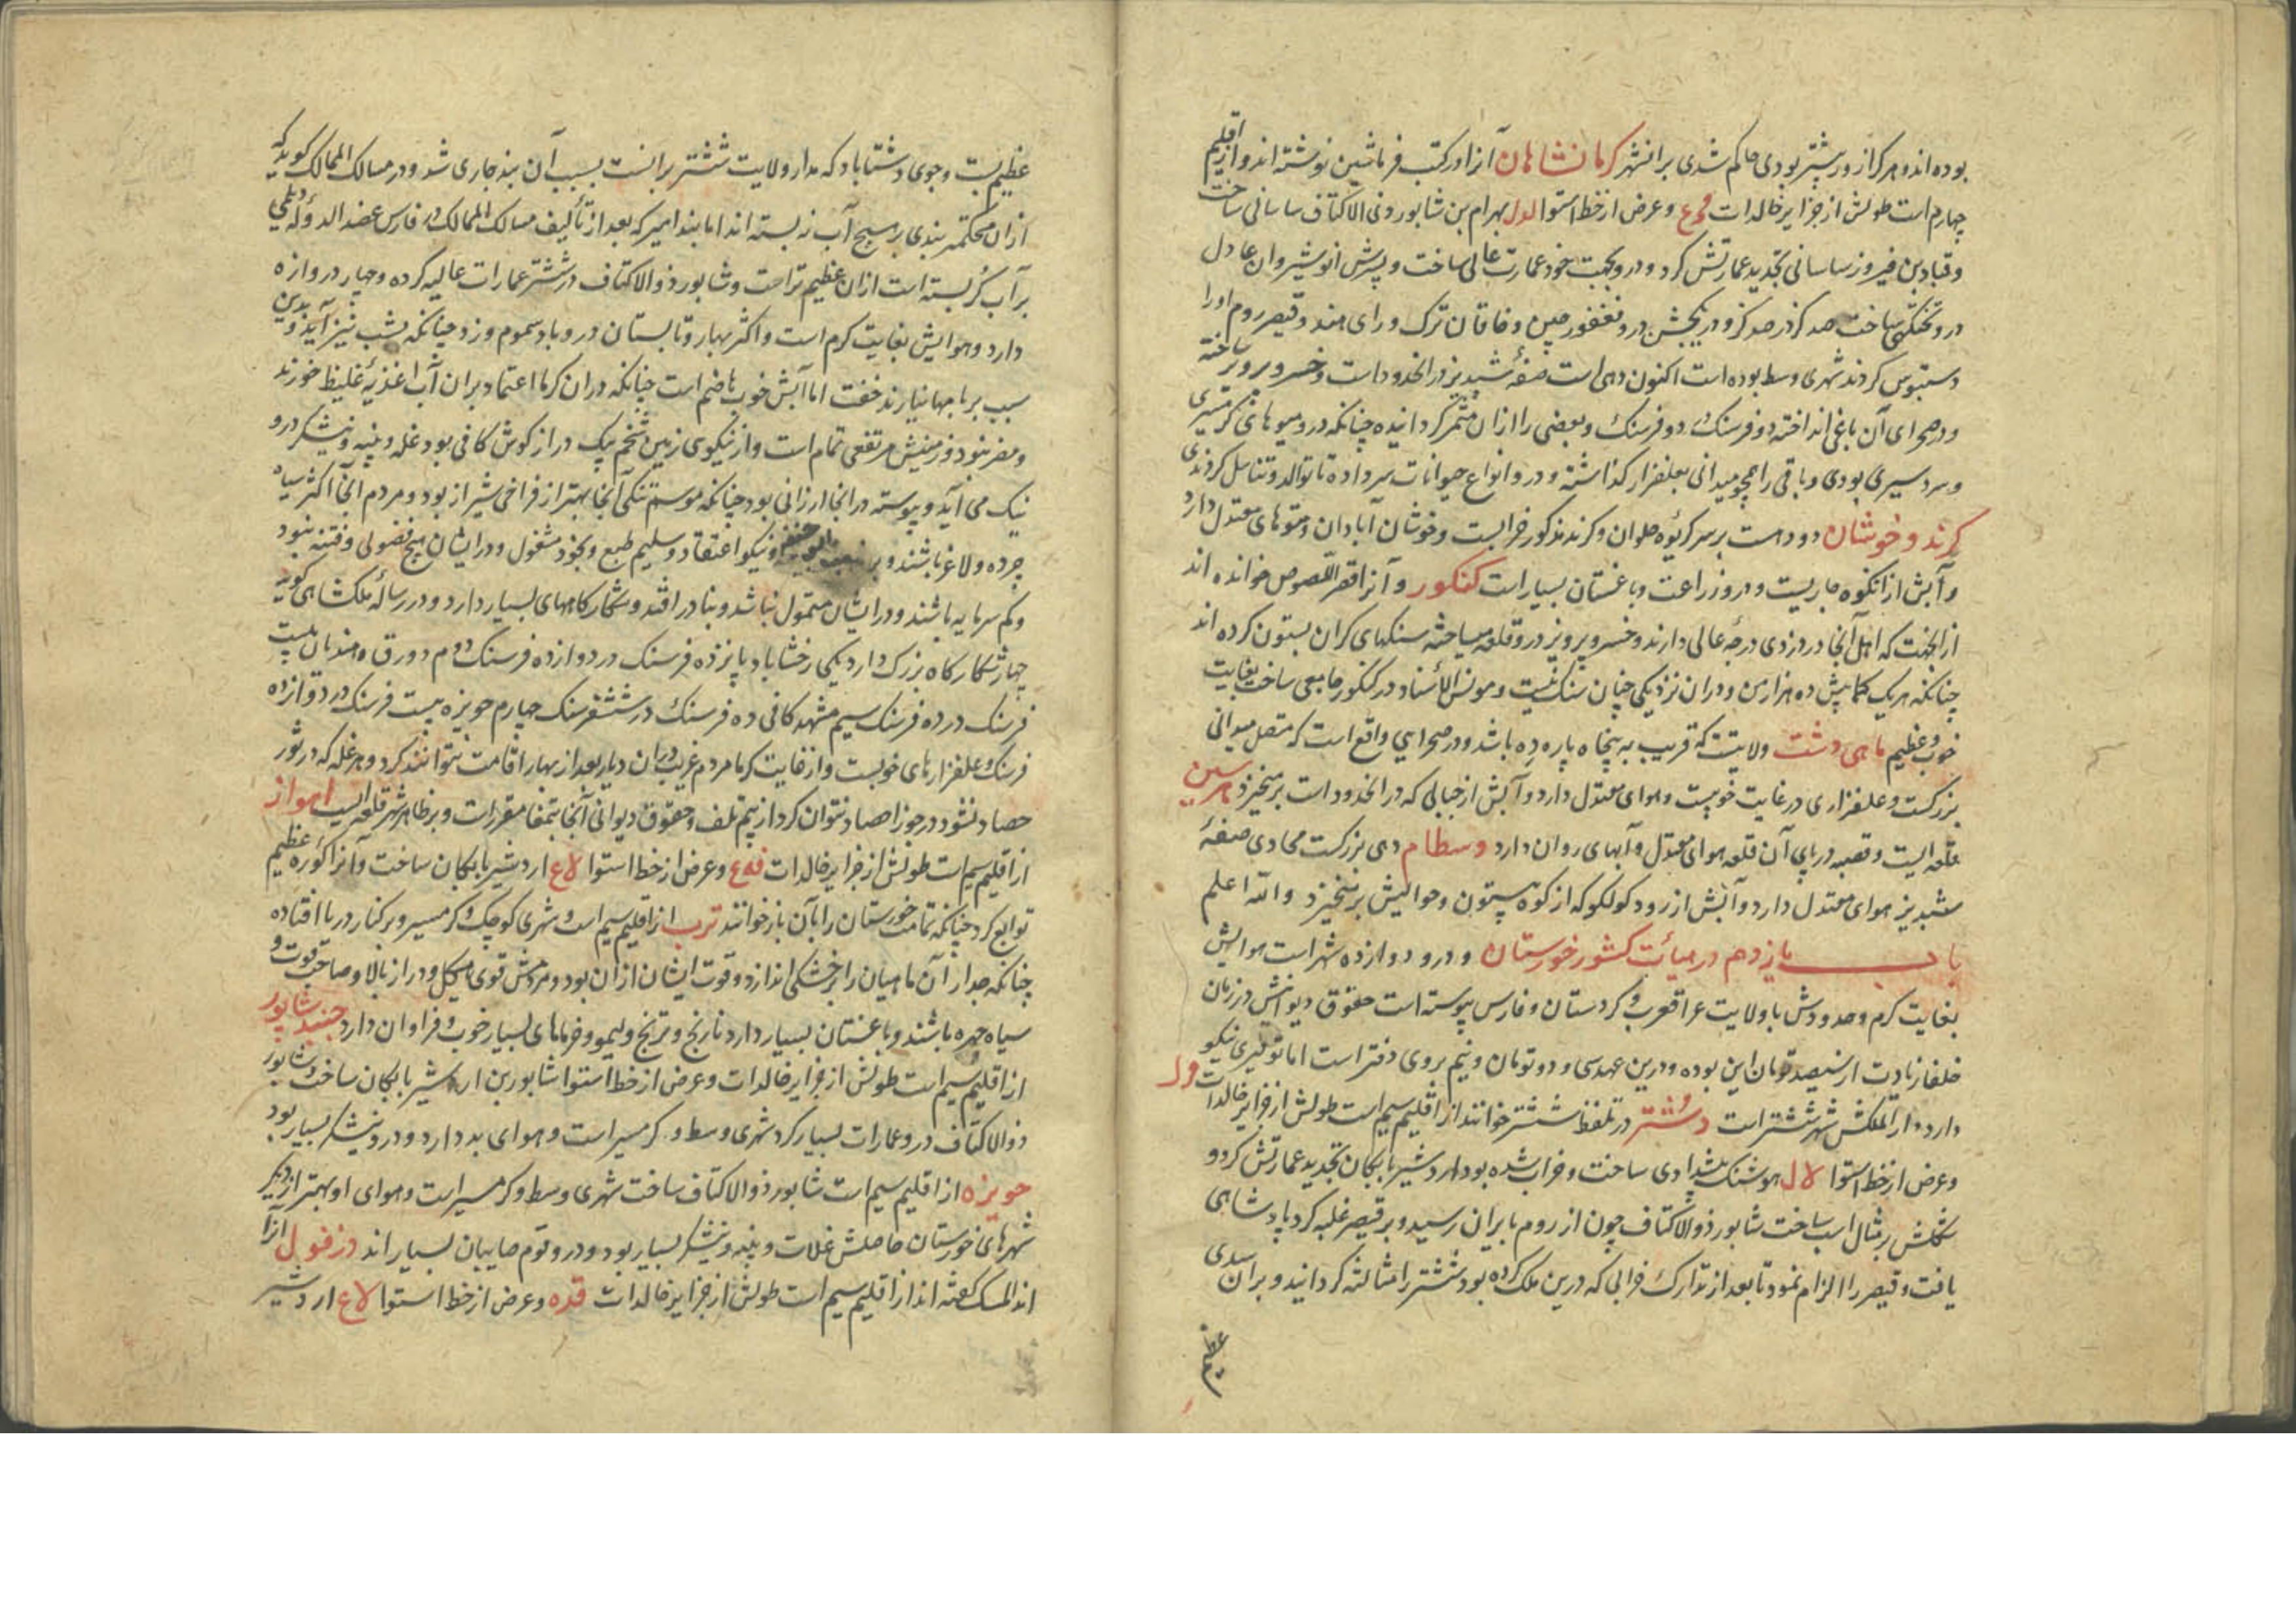 بوده‌اند و هرکرا زور بیشتر بودی حاکم شدی بران شهر کرمانشاهان آنرا در کتب قرماشین نوشته‌اند و از اقلیم
چهارم است طولش از جزایر خالدات فج ع و عرض از خط استوا لدل بهرام بن شابور ذی الاکتاف ساسانی ساخت
و قباد بن فیروز ساسانی تجدید عمارتش کرد و درو بجهت خود عمارت عالی ساخت و پسرش انوشیروان عادل
درو دکه ساخت صد کز در صد کز و در یکجشن درو فغفور چین و خاقان ترک و رای هند و قیصر روم اورا
دستبوس کردند شهری وسط بوده است اکنون دهی است صفهٔ شبدیز در انحدود است و خسرو پرویز ساخته
و در صحرای آن باغی انداخته دو فرسنک در دو فرسنک و بعضی را ازان مثمر کردانیده چنانکه درو میوهای کرمسیری
و سردسیری بودی و باقی را همچو میدانی بعلفزار کذاشته و درو انواع حیوانات سر داده تا توالد و تناسل کردندی
کرند و خوشان دو دهست بر سر کریوه حلوان و کرند مذکور خرابست و خوشان آبادان و هوای معتدل دارد
و آبش از انکوه جاریست و درو زراعت و باغستان بسیار است کنکور و آنرا قصر اللصوص خوانده‌اند
از انجهت که اهل آنجا در دزدی درجهٔ عالی دارند و خسرو پرویز درو قلعه میساخته سنکهای کران بستون کرده‌اند
چنانکه هر یک کمابیش ده هزار من و دران نزدیکی چنان سنک نیست و مونس الاستاد در کنکور جامعی ساخت بغایت
خوب و عظیم ماهی دشت ولایتیست که قریب به پنجاه پاره ده باشد و در صحرایی واقع است که متصل میدانی
بزرکست و علفزاری در غایت خوبیست و هوای معتدل دارد و آبش از جبالی که در انحدود است برمیخیزد هرسین
قلعه ایست و قصبه در پای آن قلعه هوای معتدل و آبهای روان دارد وسطام دهی بزرکست محاذی صفهٔ
شبدیز هوای معتدل دارد و آبش از رود کولکو که از کوه بیستون و حوالیش برمیخیزد والله اعلم
باب یازدهم در میأت کشور خورستان و درو دوازده شهر است هوایش
بغایت کرم و حدودش با ولایت عراق عرب و کردستان و فارس پیوسته است حقوق دیوانیش در زمان
خلفا زیادت از سیصد تومان این بوده و درین عهد سی و دو تومان و نیم بروی دفتر است اما توفیری نیکو
دارد و دار الملکش شهر ششتر است دستتر در تلفظ ششتر خوانند از اقلیم سیم است طولش از جزایر خالدات فدل
و عرض از خط استوا لال هوشنک پیشدادی ساخت و خراب شده بود اردشیر بابکان تجدید عمارتش کرد و
شکلش بر مثال اسب ساخت شابور ذو الاکتاف چون از روم بایران رسید و بر قیصر غلبه کرد پادشاهی
یافت و قیصر را الزام نمود تا بعد از تدارک خرابی که درین ملک کرده بود ششتر را مثالثه کردانید و بران سدی
عظیم
عظیم بست و جوی دشتاباد که مدار ولایت ششتر برانست بسبب آن بند جاری شد و در مسالک الممالک کوید که
ازان محکمتر بندی بر هیچ آب نه بسته‌اند اما بند امیر که بعد از تألیف مسالک الممالک در فارس عضد الدوله دیلمی
بر آب کر بسته است ازان عظیم‌تر است و شابور ذو الاکتاف در ششتر عمارات عالیه کرده و چهار دروازه
دارد و هوایش بغایت کرم است و اکثر بهار و تابستان درو باد سموم وزد چنانکه بشب نیز آید و بدین
سبب بر بامها نیارند خفت اما آبش خوب هاضم است چنانکه دران کرما اعتماد بران آب اغذیهٔ غلیظ خورند
و مضر نبود و زمینش مرتفعی تمام است و از نیکوی زمین تخم یک دراز کوش کافی بود غله و پنبه و نیشکر درو
نیک می آید و پیوسته در انجا ارزانی بود چنانکه موسم تنکی آنجا بهتر از فراخی شیراز بود و مردم آنجا اکثر سیاه
چرده و لاغر باشند و بر مذهب ابو حنیفه و نیکو اعتقاد و سلیم طبع و بخود مشغول و در ایشان هیچ فضولی و فتنه نبود
و کم سرمایه باشند و در ایشان متمول نباشد و بنادر افتد و شکارکاههای بسیار دارد و در رسالهٔ ملکشاهی کوید
چهار شکارکاه بزرک دارد یکی رخشاباد پانزده فرسنک در دوازده فرسنک دوم دورق و هندیان بیست
فرسنک در ده فرسنک سیم مشهد کافی ده فرسنک در شش فرسنک چهارم حویزه بیست فرسنک در دوازده
فرسنک و علفزارهای خوبست و از غایت کرما مردم غریب دران دیار بعد از بهار اقامت نتوانند کرد و هر غله که در ثور
حصاد نشود در جوزا حصاد نتوان کرد از بیم تلف و حقوق دیوانی آنجا بتمغا مقرر است و بر ظاهر شهر قلعه ایست اهواز
از اقلیم سیم است طولش از جزایر خالدات فه ع و عرض از خط استوا لاع اردشیر بابکان ساخت و آنرا کورهٔ عظیم
توابع کرد چنانکه تمامت خورستان را بآن باز خوانند ترب از اقلیم سیم است و شهری کوچک و کرمسیر و بر کنار دریا افتاده
چنانکه جدار آن ماهیان را بر خشکی اندازد و قوت ایشان ازان بود و مردمش قوی هیکل و دراز بالا و صاحب قوت و
سیاه چهره باشند و باغستان بسیار دارد نارنج و ترنج و لیمو و خرماهای بسیار خوب و فراوان دارد جنید شابور
از اقلیم سیم است طولش از جزایر خالدات و عرض از خط استوا شابور بن اردشیر بابکان ساخت شابور
ذو الاکتاف درو عمارات بسیار کرد شهری وسط و کرمسیر است و هوای بد دارد و درو نیشکر بسیار بود
حویزه از اقلیم سیم است شابور ذو الاکتاف ساخت شهری وسط و کرمسیر است و هوای او بهتر از دیکر
شهرهای خورستان حاصلش غلات و پنبه و نیشکر بسیار بود و درو قوم صابیان بسیار اند دزفول آنرا
اندالمسک کفته‌اند از اقلیم سیم است طولش از جزایر خالدات فده و عرض از خط استوا لاع اردشیر